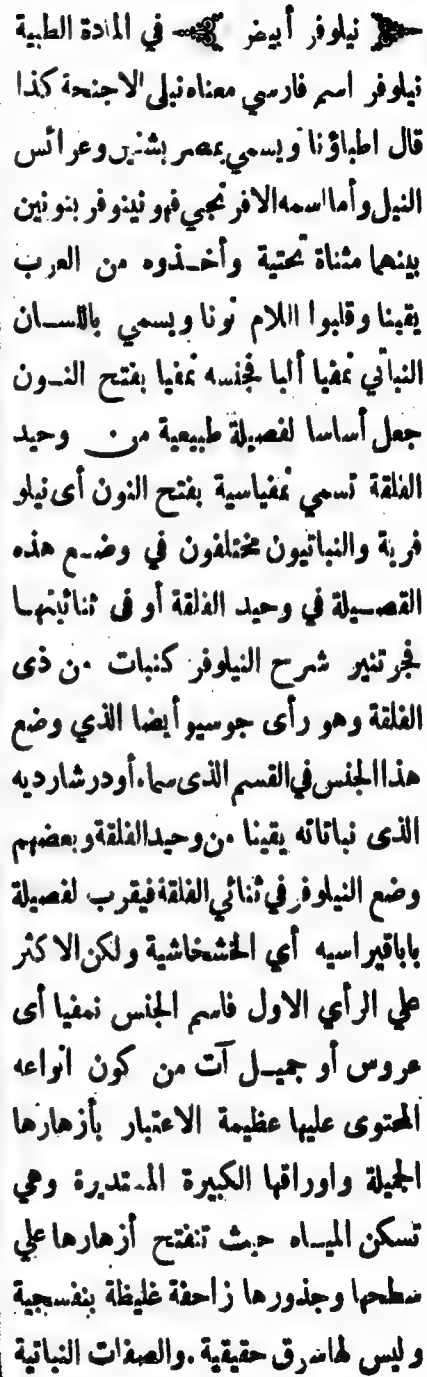 نيلوفر أبيض في المادة الطبية
نيلوفر اسم فارسي معناه نيلى الاجنحة كذا
قال اطباؤنا ويسمي بمصر بشنين وعرائس
النيل وأما اسمه الافرنجي فهو نينوفر بنونين
بينهما مثناة تحتية وأخـذوه من العرب
يقينا وقلبوا اللام نونا ويسمي باللسـان
النباتي نمفيا ألبا فجنسه نمفيا بفتح النـون
جعل أساسا لفصيلة طبيعية من وحيد
الفلقة تسمي نمفياسية بفتح النون أى نيلو
فرية والنباتيون مختلفون في وضـع هذه
الفصـيلة في وحيد الفلقة أو فى ثنائيتهـا
فجرتنير شرح النيلوفر كنبات من ذى
الفلقة وهو رأى جوسيو أيضا الذي وضع
هذا الجنس في القسم الذى سماه أودرشارديه
الذى نباتاته يقينا من وحيد الفلقة وبعضهم
وضع النيلوفر في ثنائي الفلقة فيقرب لفصيلة
باباقيراسيه أي الخشخاشية ولكن الاكثر
علي الرأي الاول فاسم الجنس نمفيا أى
عروس أو جميـل آت من كون انواعه
المحتوى عليها عظيمة الاعتبار بأزهارها
الجميلة واوراقها الكبيرة المستديرة وهي
تسكن الميـاه حيث تنفتح أزهارها علي
سطحها وجذورها زاحفة غليظة بنفسجية
وليس لها سوق حقيقية .والصفات النباتية